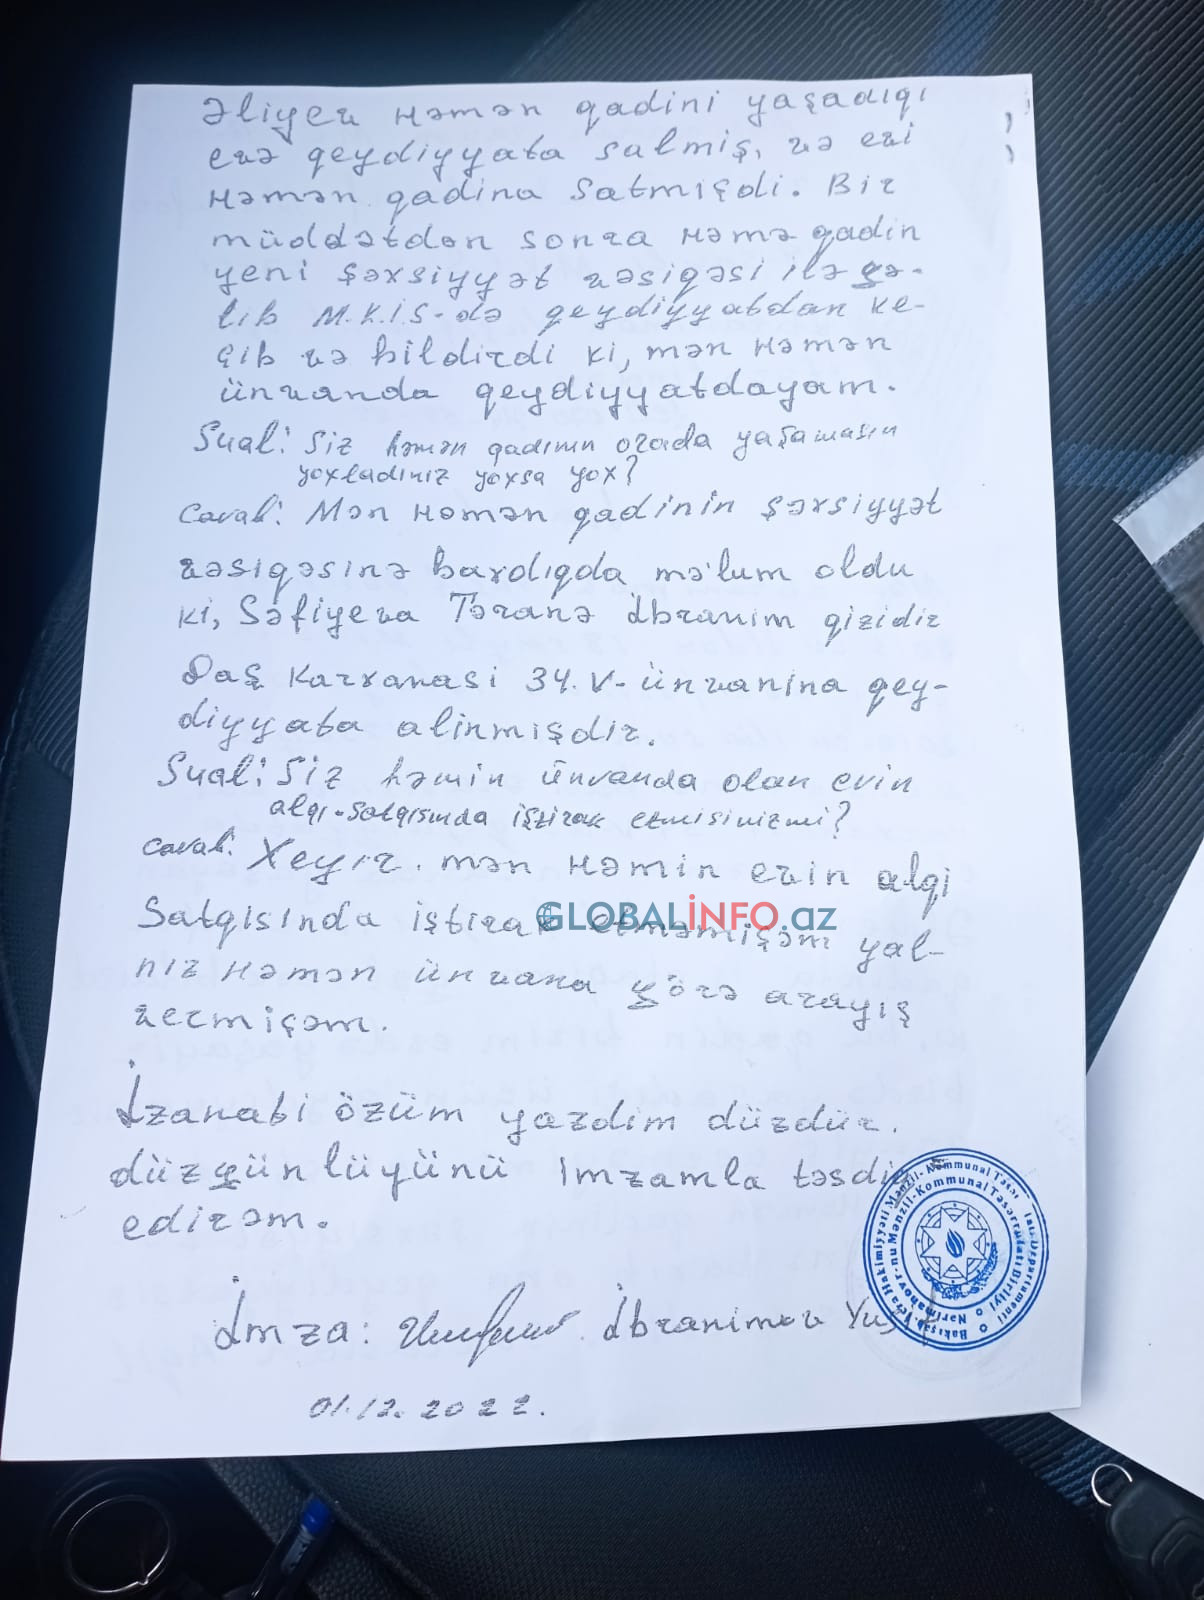 Əliyev Həmən qadini yaşadıqı
evə qeydiyyata salmiş, və evi
Həmən qadina satmışdi. Bir
müddətdən sonra Həmə qadin
yeni şəxsiyyət vəsiqəsi ilə gə-
lib M.K.İ.S-də qeydiyyatdan ke-
çib və bildirdi ki, mən Həmən
ünvanda qeydiyyatdayam.
Sual: Siz həmən qadının orada yaşamasın
yoxladınız yoxsa yox?
Cavab: Mən Həmən qadinin şəxsiyyət
vəsiqəsinə baxdıqda mə'lum oldu
ki, Səfiyeva Təranə İbrahim qizidir
Daş Karvanasi 34. V- ünvanina qey-
diyyata alinmişdir.
Sual: Siz həmin ünvanda olan evin
alqı-satqısında iştirak etmisinizmi?
Cavab: Xeyır. mən Həmin evin alqi
Satqısında iştirak etməmişəm yal-
nız Həmən ünvana görə arayış
vermişəm.
İzahati özüm yazdim düzdür.
düzgünlüyünü imzamla təsdiq
edirəm.
İmza: İbrahimov
01.12.2022.
GLOBALİNFO.az